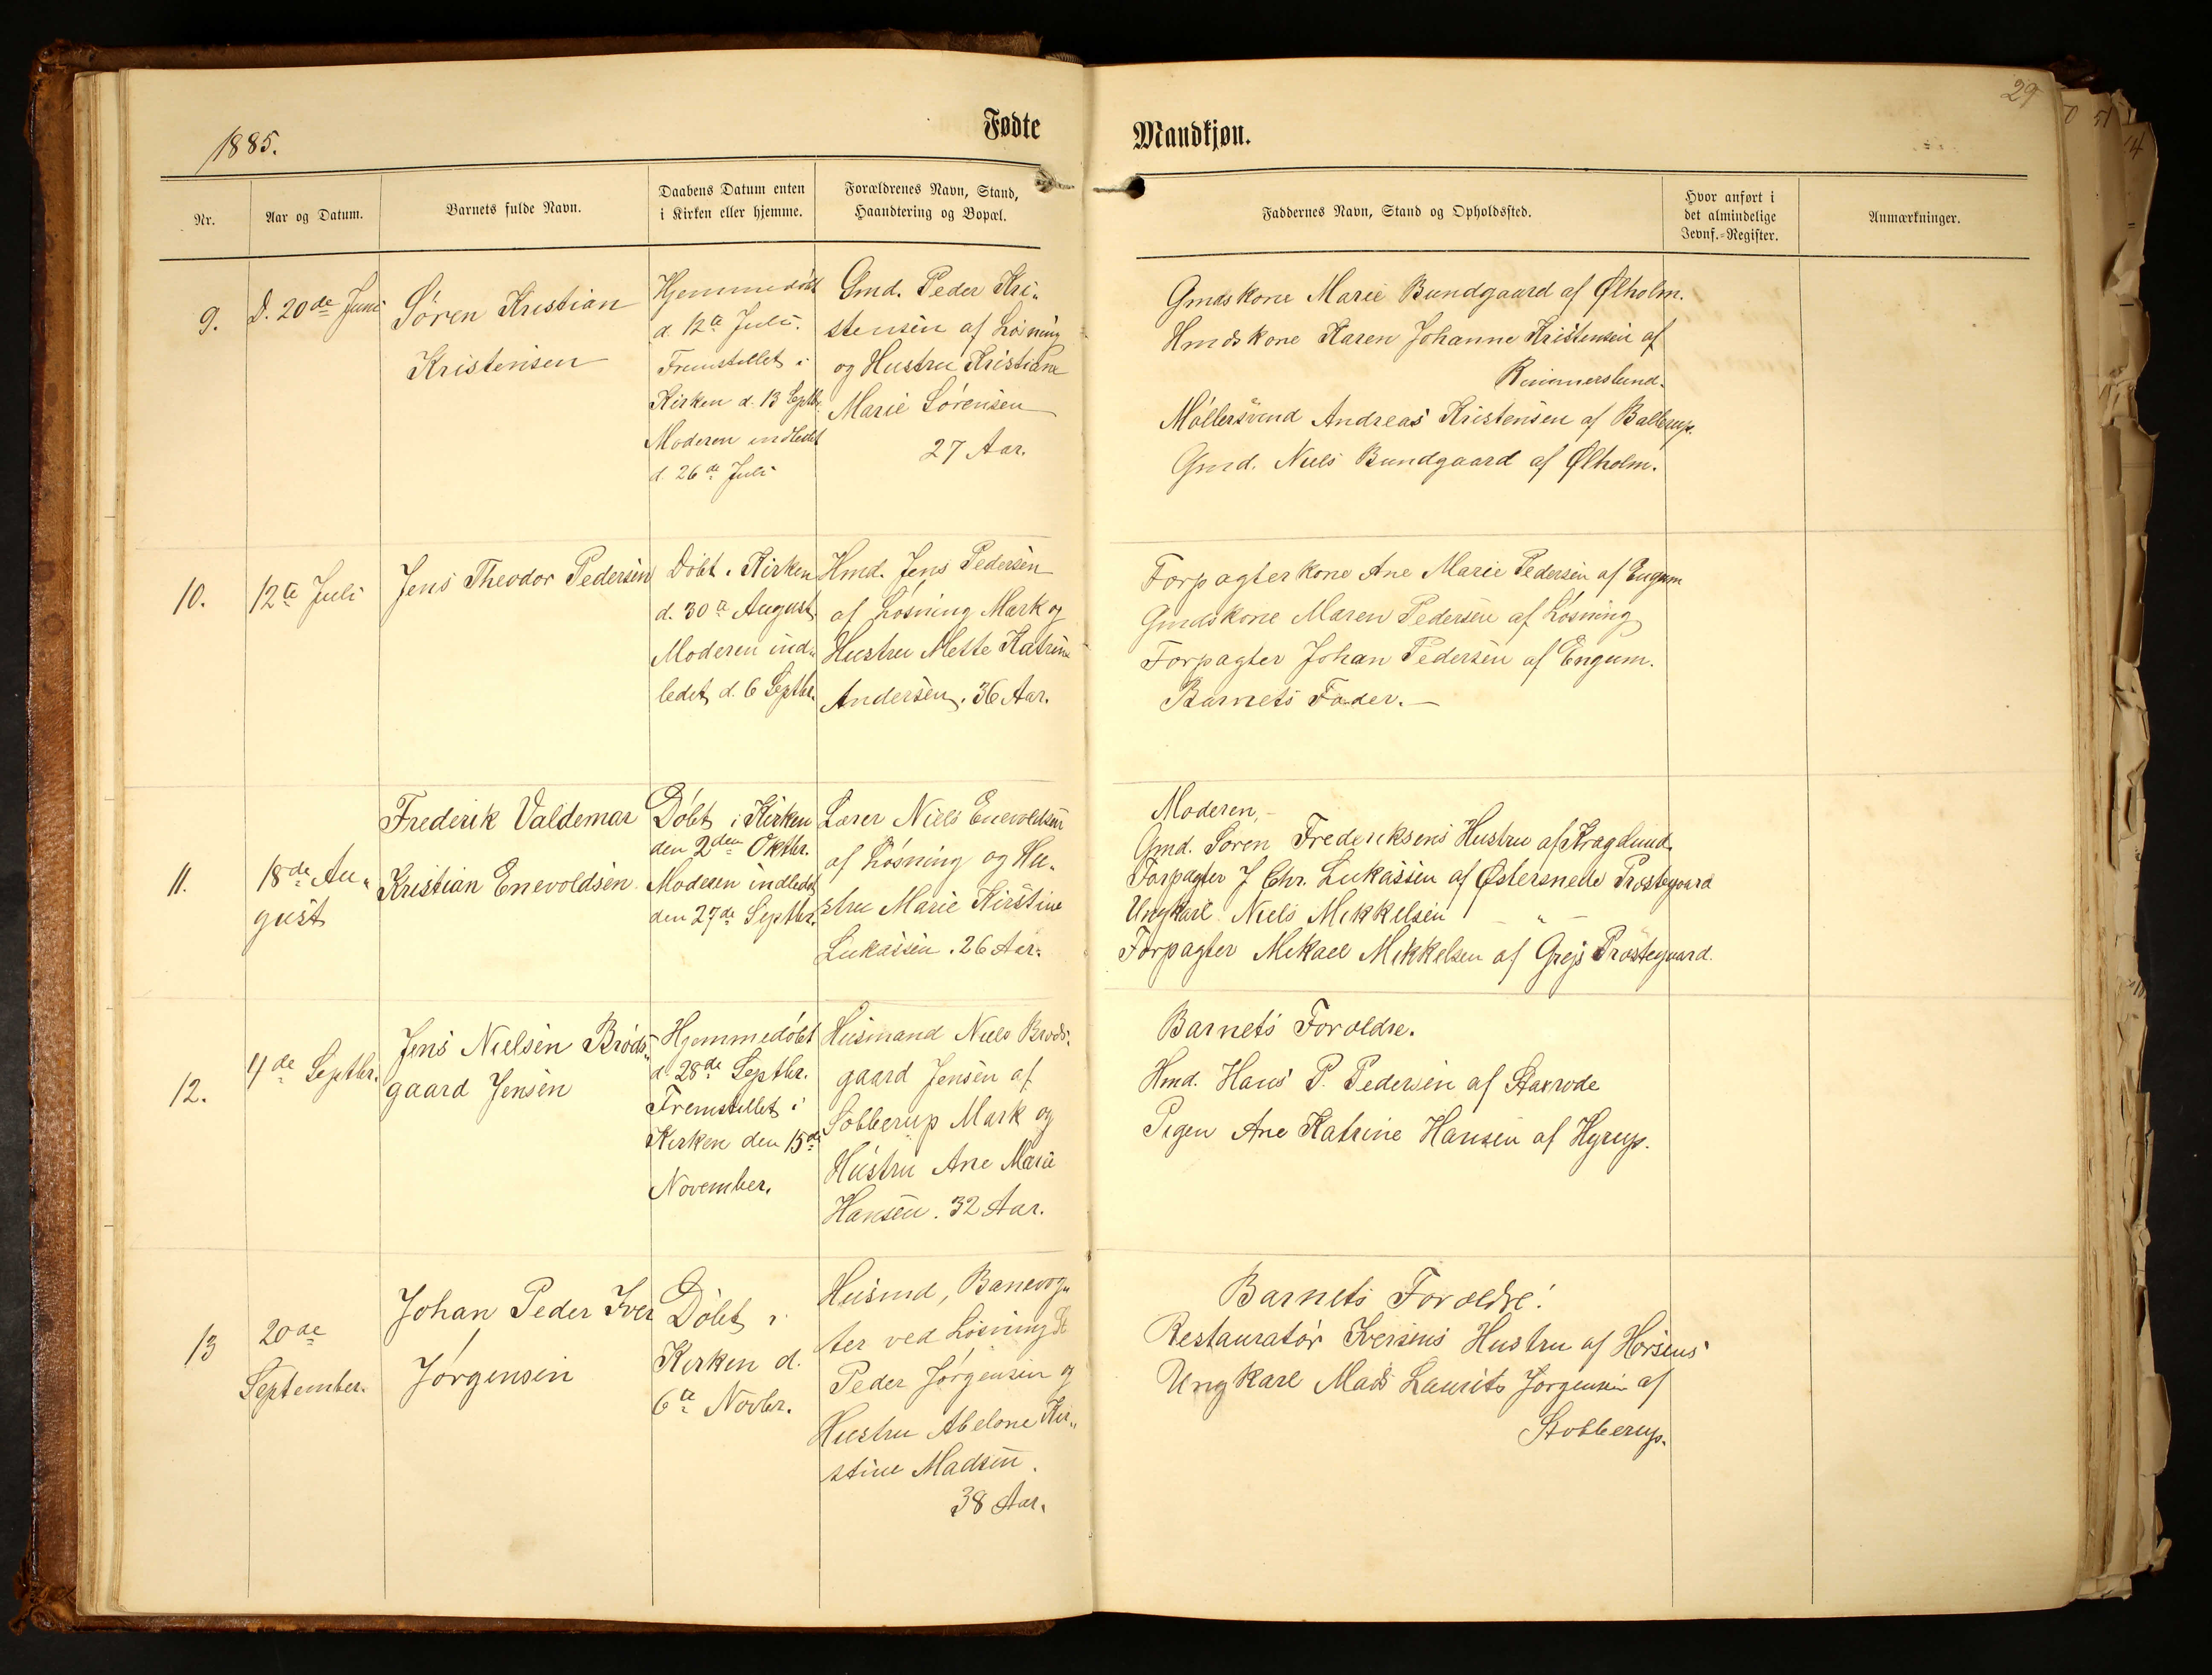 1885.
Fødte
Mandkjøn.
29
Nr.
Aar og Datum.
Barnets fulde Navn.
Daabens Datum enten
i Kirken eller hjemme.
Forældrenes Navn, Stand,
Haandtering og Bopæl.
Faddernes Navn, Stand og Opholdssted.
Hvor anført i
det almindelige
Jevnf.-Register.
Anmærkninger.
9.
D. 20de Juni
Søren Kristian
Kristensen
Hjemmedøbt
d. 12te Juli.
Fremstillet i
Kirken d. 13 Septbr.
Moderen indledet
d. 26de Juli
Gmd. Peder Kri-
stensen af Løsning
og Hustru Kristiane
Marie Sørensen
27 Aar.
Gmdskone Marie Bundgaard af Ølholm.
Hmdskone Karen Johanne Kristensen af
Rimmerslund.
Møllersvend Andreas Kristensen af Ballerup.
Gmd. Niels Bundgaard af Ølholm.
10.
12te Juli
Jens Theodor Pedersen
Døbt i Kirken
d. 30te August
Moderen ind-
ledet d. 6 Septbr.
Hmd. Jens Pedersen
af Løsning Mark og
Hustru Mette Katrine
Andersen. 36 Aar.
Forpagterkone Ane Marie Pedersen af Engum
Gmdskone Maren Pedersen af Løsning
Forpagter Johan Pedersen af Engum.
Barnets Fader. —
11.
18de Au-
gust
Frederik Valdemar
Kristian Enevoldsen
Døbt i Kirken
den 2den Oktbr.
Moderen indledet
den 27de Septbr.
Lærer Niels Enevoldsen
af Løsning og Hu-
stru Marie Kirstine
Lukassen. 26 Aar.
Moderen, -
Gmd. Søren Frederiksens Hustru af Kragelund.
Forpagter J Chr. Lukassen af Østersnede Præstegaard
Ungkarl Niels Mikkelsen — " —
Forpagter Mikael Mikkelsen af Grejs Præstegaard.
12.
4de Septbr.
Jens Nielsen Brøds-
gaard Jensen
Hjemmedøbt
d. 28de Septbr.
Fremstillet i
Kirken den 15de
November.
Husmand Niels Brøds-
gaard Jensen af
Sobberup Mark og
Hustru Ane Marie
Hansen. 32 Aar.
Barnets Forældre.
Hmd. Hans P. Pedersen af Staxrode
Pigen Ane Katrine Hansen af Hyrup.
13
20de
September.
Johan Peder Iver
Jørgensen
Døbt i
Kirken d.
6te Novbr.
Husmd, Banevog-
ter ved Løsning St
Peder Jørgensen og
Hustru Abelone Kir-
stine Madsen.
38 Aar.
Barnets Forældre!
Restauratør Iversens Hustru af Horsens
Ungkarl Mads Laurits Jørgensen af
Stobberup.